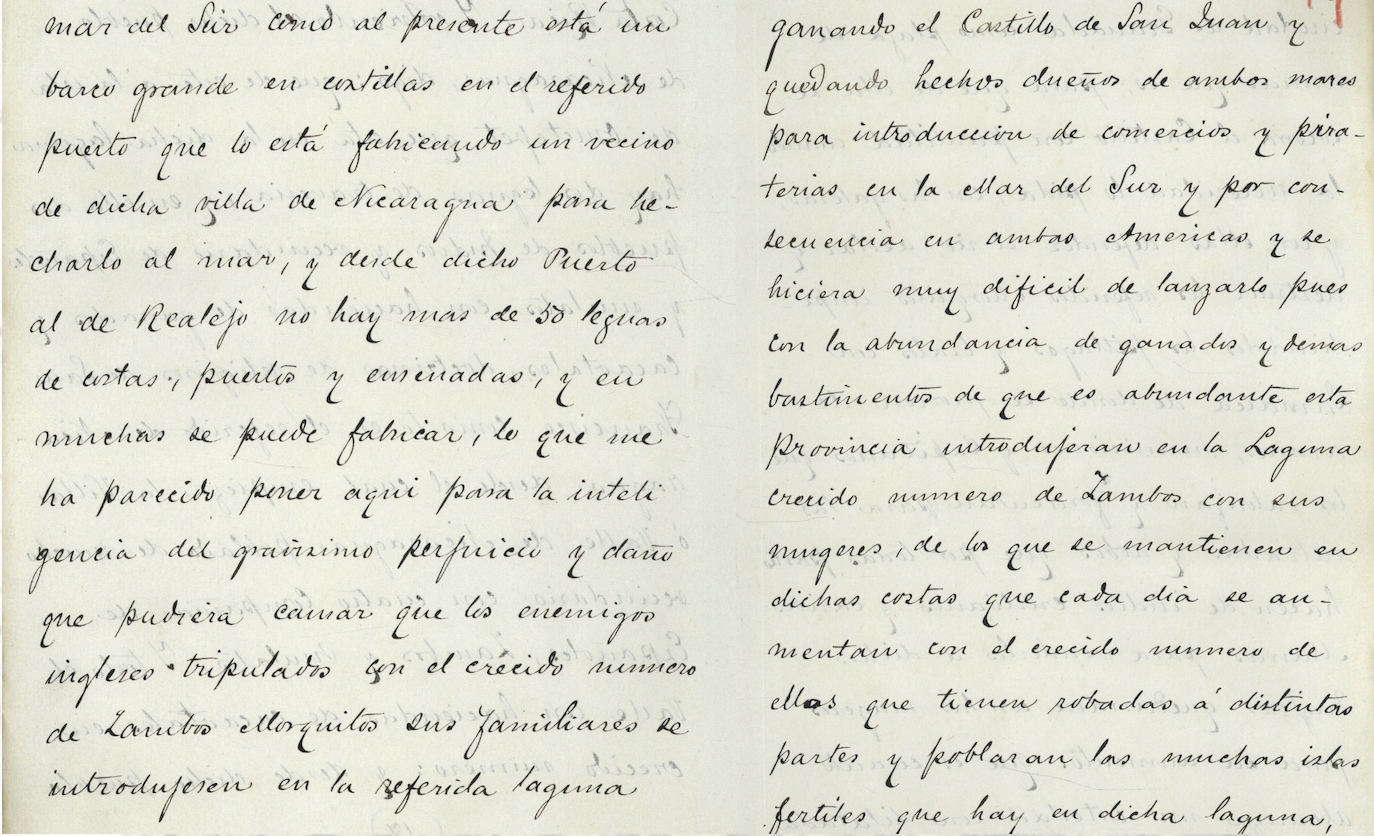 mar del Sur como al presente está un
barco grande en costillas en el referido
puerto que lo está fabricando un vecino
de dicha villa de Nicaragua para he-
charlo al mar, y desde dicho Puerto
al de Realejo no hay mas de 50 leguas
de costas, puertos y ensenadas, y en
muchas se puede fabricar, lo que me
ha parecido poner aqui para la inteli
gencia del gravisimo perjuicio y daño
que pudiera causar que los enemigos
ingleses tripulados con el crecido numero
de Zambos Mosquitos sus familiares se
introdujesen en la referida laguna
ganando el Castillo de San Juan y
quedando hechos dueños de ambos mares
para introduccion de comercios y pira-
terias en la Mar del Sur y por con-
secuencia en ambas Americas y se
hiciera muy dificil de lanzarlo pues
con la abundancia de ganados y demas
bastimentos de que es abundante esta
provincia introdujeran en la Laguna
crecido numero de Zambos con sus
mugeres, de los que se mantienen en
dichas costas que cada dia se au-
mentan con el crecido numero de
ellas que tienen robadas á distintas
partes y poblaran las muchas islas
fertiles que hay en dicha laguna,